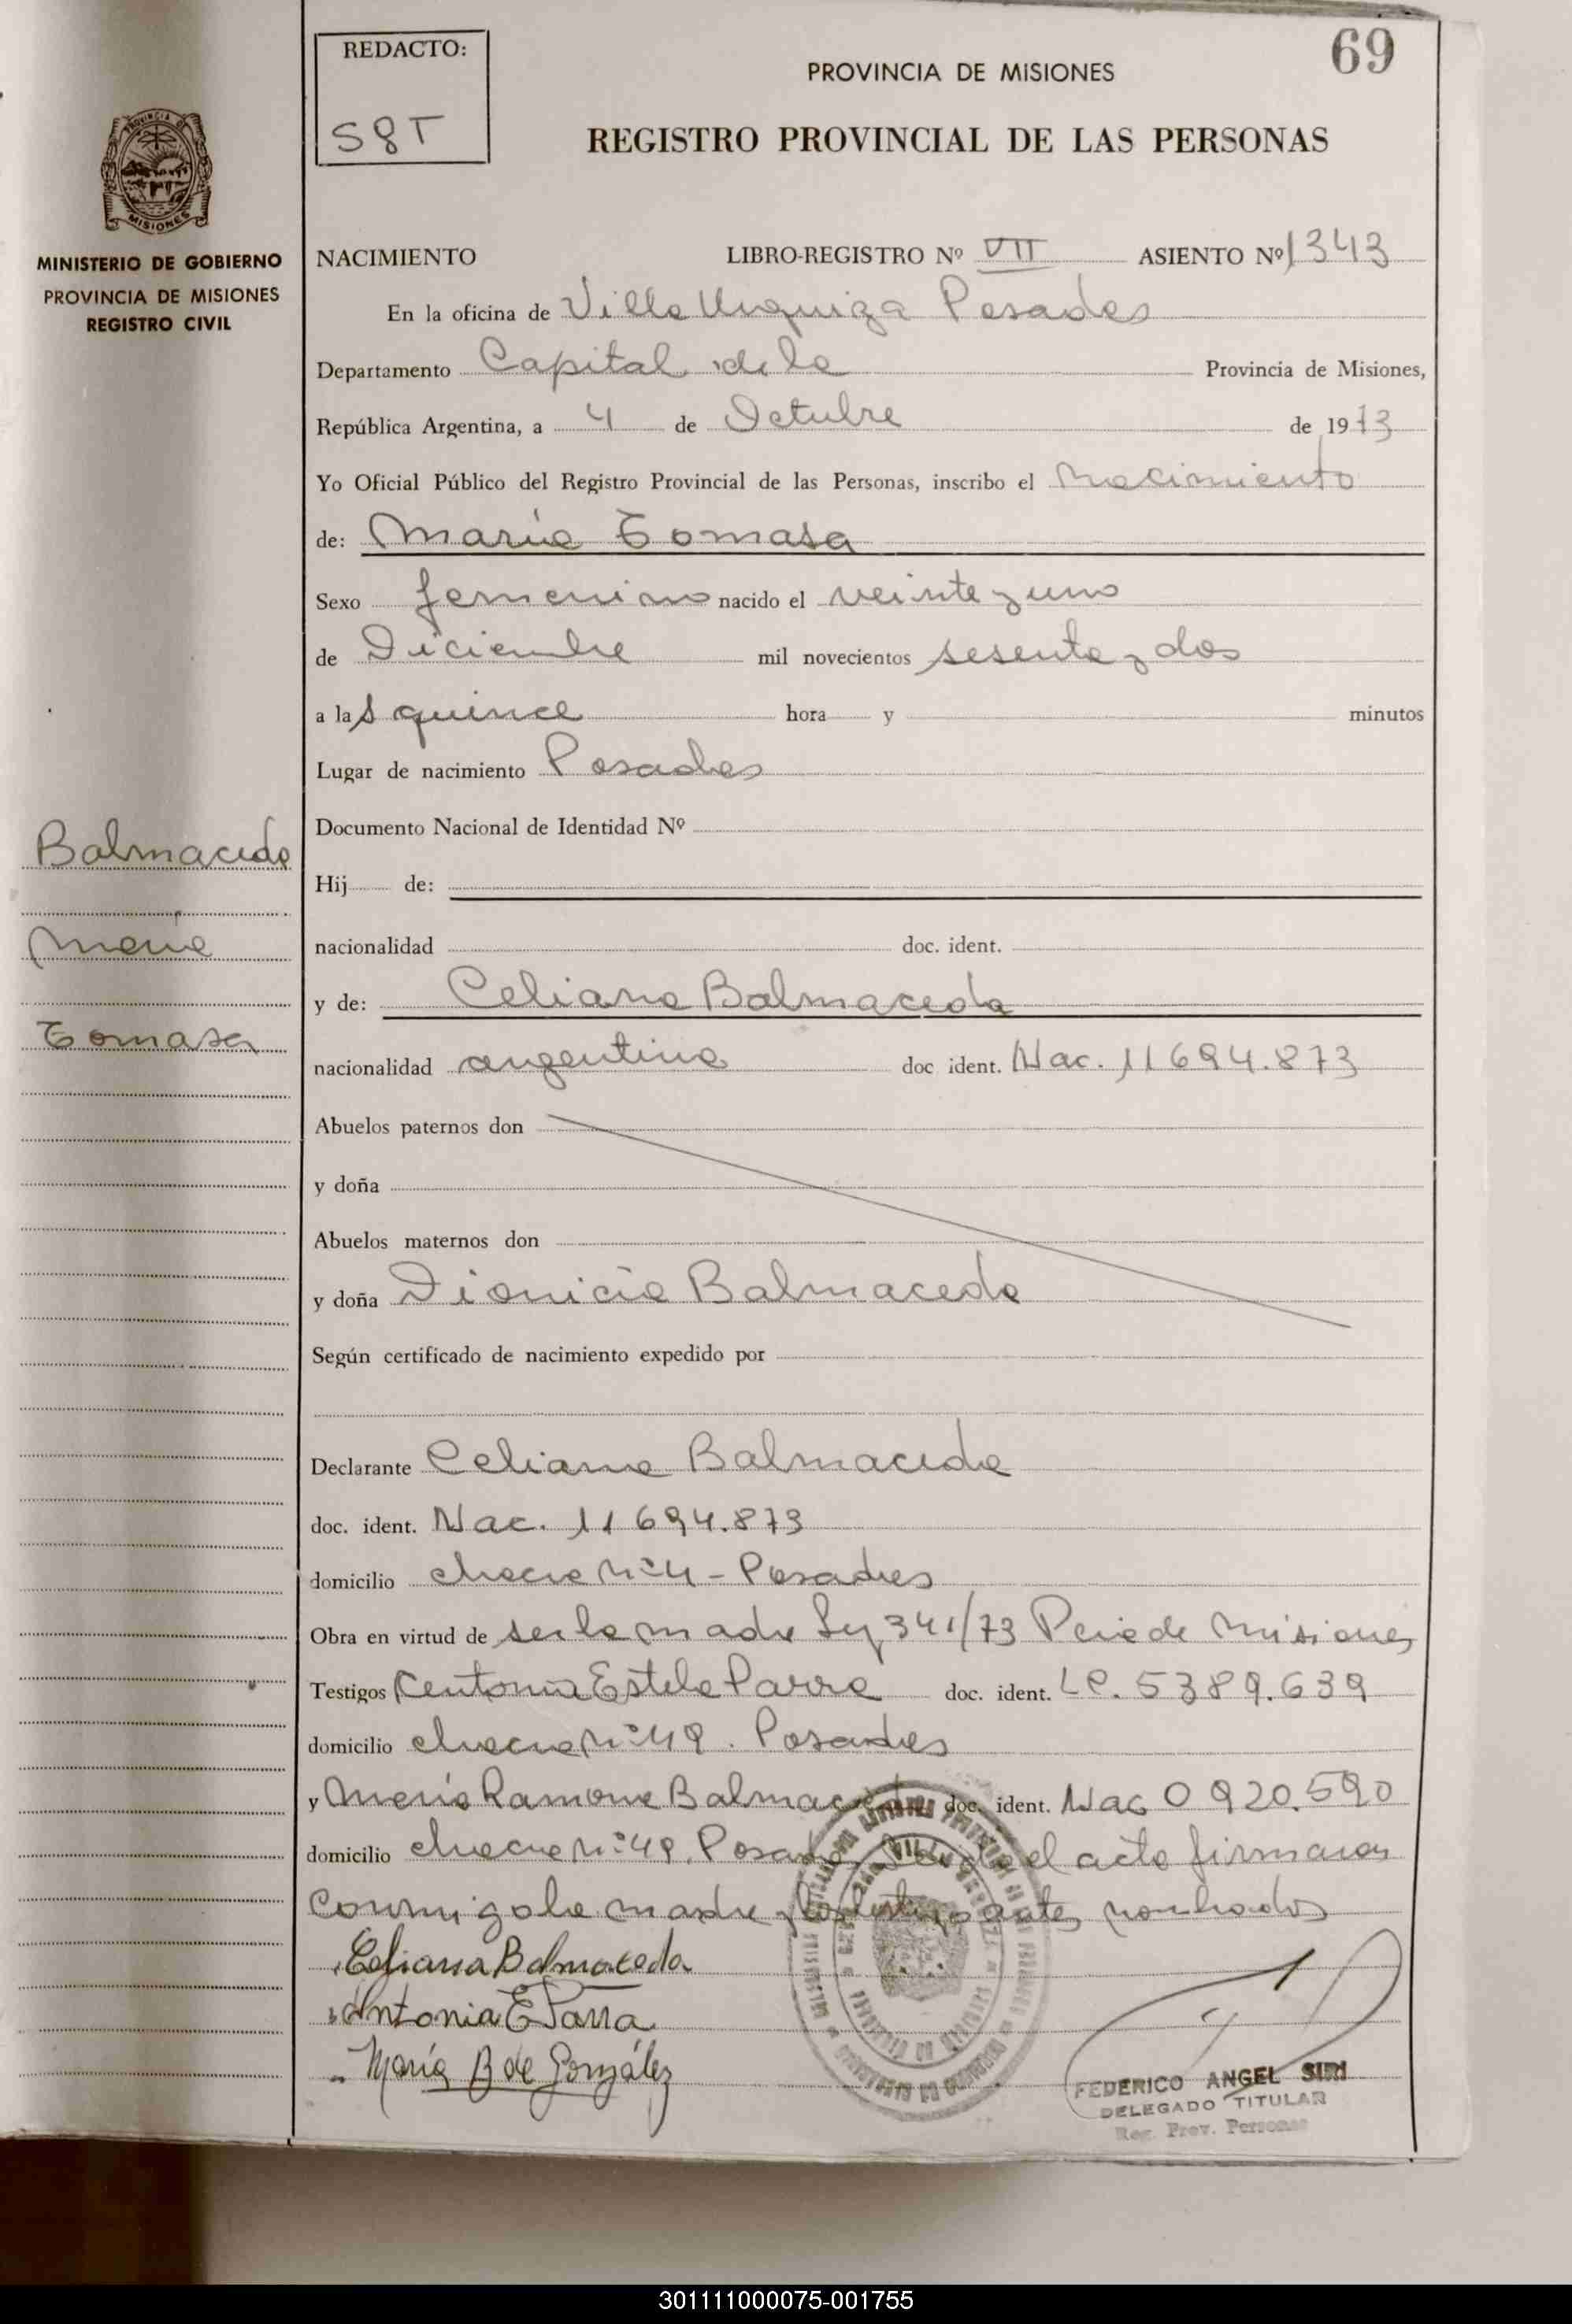 REDACTO:
S8T
69
PROVINCIA DE MISIONES
REGISTRO PROVINCIAL DE LAS PERSONAS
MINISTERIO DE GOBIERNO
PROVINCIA DE MISIONES
REGISTRO CIVIL
NACIMIENTO LIBRO-REGISTRO Nº VII ASIENTO Nº 1343
En la oficina de Villa Urquiza Posadas
Departamento Capital de la Provincia de Misiones,
República Argentina, a 4 de Octubre de 1973
Yo Oficial Público del Registro Provincial de las Personas, inscribo el nacimiento
de: María Tomasa
Sexo femenino nacido el veinte y uno
de Diciembre mil novecientos sesenta y dos
a las quince hora y minutos
Lugar de nacimiento Posadas
Documento Nacional de Identidad Nº
Balmaceda
María
Tomasa
Hij de:
nacionalidad doc. ident.
y de: Celiana Balmaceda
nacionalidad argentina doc ident. Nac. 11694.873
Abuelos paternos don
y doña
Abuelos maternos don
y doña Dionicia Balmaceda
Según certificado de nacimiento expedido por
Declarante Celiana Balmaceda
doc. ident. Nac. 11694.873
domicilio chacra Nº 4 - Posadas
Obra en virtud de ser la madre Ley 341/73 Pcia de Misiones
Testigos Antonia Estela Parra doc. ident. LC. 5389.639
domicilio chacra Nº 49. Posadas
y María Ramona Balmaceda doc. ident. Nac 0920.590
domicilio chacra Nº 49. Posadas el acta firmaron
conmigo la madre y los testigos antes nombrados
Celiana Balmaceda
Antonia E Parra
María B de González
FEDERICO ANGEL SIRI
DELEGADO TITULAR
Reg. Prov. Personas
301111000075-001755